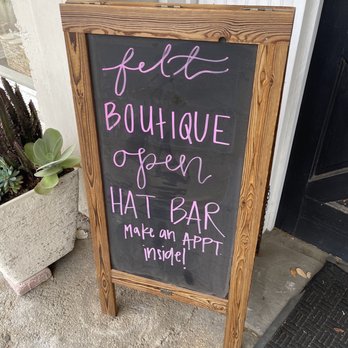 felt
BOUTIQUE
open
HAT BAR
Make an APPT.
inside!